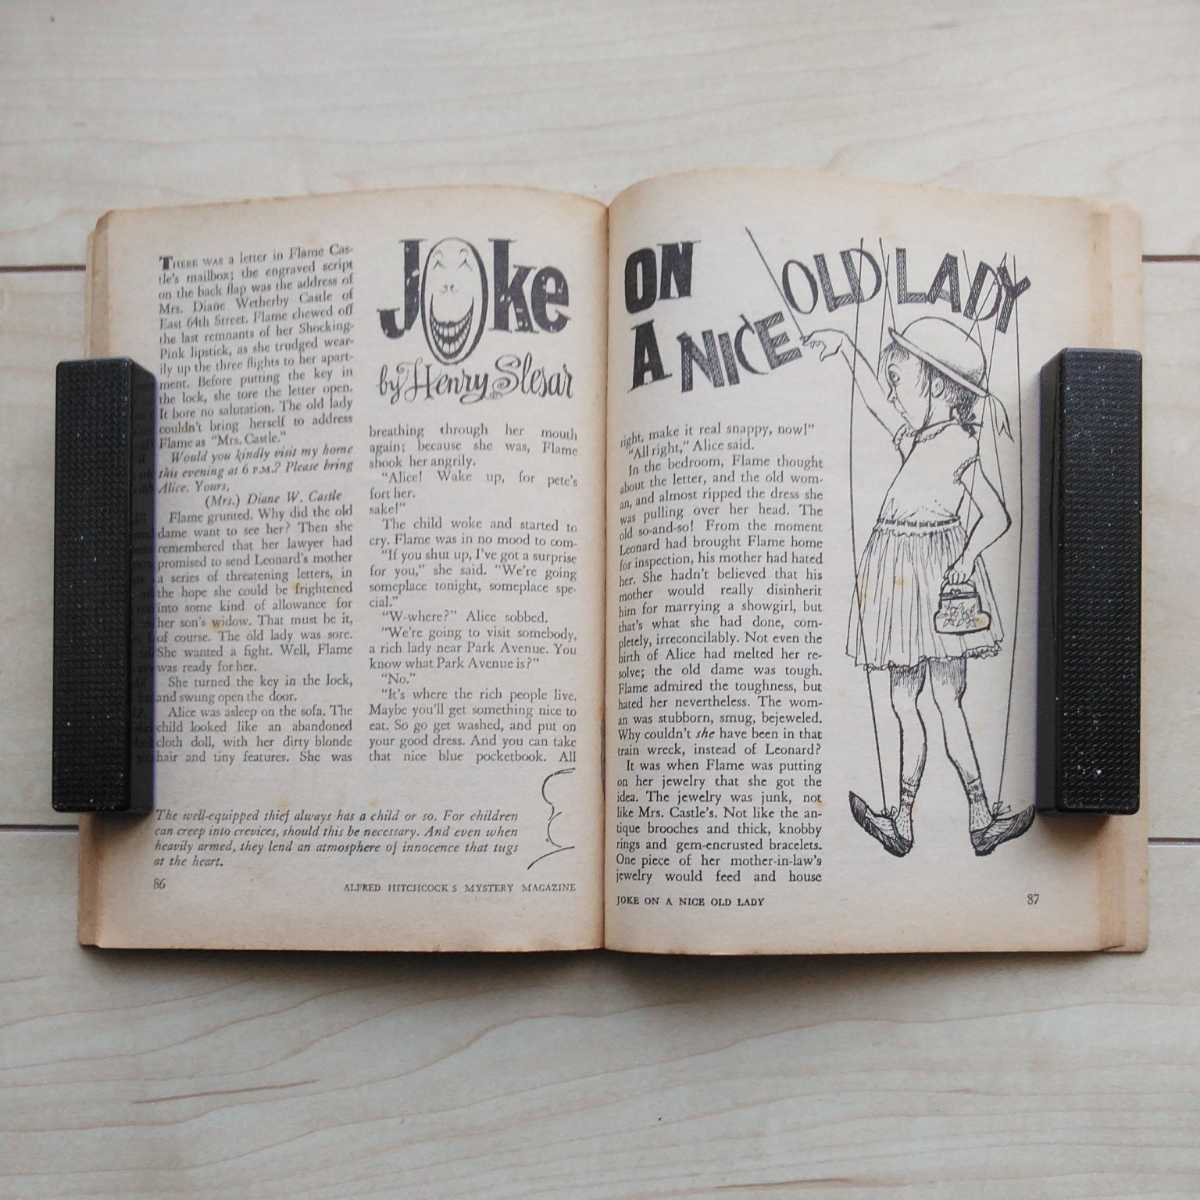 THERE WAS a letter in Flame Cas-
tle's mailbox; the engraved script
on the back flap was the address of
Mrs. Diane Wetherby Castle of
East 64th Street. Flame chewed off
the last remnants of her Shocking-
Pink lipstick, as she trudged wear-
ily up the three flights to her apart-
ment. Before putting the key in
the lock, she tore the letter open.
It bore no salutation. The old lady
couldn't bring herself to address
Flame as "Mrs. Castle."
Would you kindly visit my home
this evening at 6 P.M.? Please bring
Alice. Yours,
(Mrs.) Diane W. Castle
Flame grunted. Why did the old
dame want to see her? Then she
remembered that her lawyer had
promised to send Leonard's mother
a series of threatening letters, in
the hope she could be frightened
into some kind of allowance for
her son's widow. That must be it,
of course. The old lady was sore.
She wanted a fight. Well, Flame
was ready for her.
She turned the key in the lock,
and swung open the door.
Alice was asleep on the sofa. The
child looked like an abandoned
cloth doll, with her dirty blonde
hair and tiny features. She was
Joke
by Henry Slesar
breathing through her mouth
again; because she was, Flame
shook her angrily.
"Alice! Wake up, for pete's
fort her.
sake!"
The child woke and started to
cry. Flame was in no mood to com-
"If you shut up, I've got a surprise
for you," she said. "We're going
someplace tonight, someplace spe-
cial."
"W-where?" Alice sobbed.
"We're going to visit somebody,
a rich lady near Park Avenue. You
know what Park Avenue is?"
"No."
"It's where the rich people live.
Maybe you'll get something nice to
eat. So go get washed, and put on
your good dress. And you can take
that nice blue pocketbook. All
The well-equipped thief always has a child or so. For children
can creep into crevices, should this be necessary. And even when
heavily armed, they lend an atmosphere of innocence that tugs
at the heart.
86
ALFRED HITCHCOCK'S MYSTERY MAGAZINE
ON
A NICE OLD LADY
right, make it real snappy, now!"
"All right," Alice said.
In the bedroom, Flame thought
about the letter, and the old wom-
an, and almost ripped the dress she
was pulling over her head. The
old so-and-so! From the moment
Leonard had brought Flame home
for inspection, his mother had hated
her. She hadn't believed that his
mother would really disinherit
him for marrying a showgirl, but
that's what she had done, com-
pletely, irreconcilably. Not even the
birth of Alice had melted her re-
solve; the old dame was tough.
Flame admired the toughness, but
hated her nevertheless. The wom-
an was stubborn, smug, bejeweled.
Why couldn't she have been in that
train wreck, instead of Leonard?
It was when Flame was putting
on her jewelry that she got the
idea. The jewelry was junk, not
like Mrs. Castle's. Not like the an-
tique brooches and thick, knobby
rings and gem-encrusted bracelets.
One piece of her mother-in-law's
jewelry would feed and house
JOKE ON A NICE OLD LADY
87